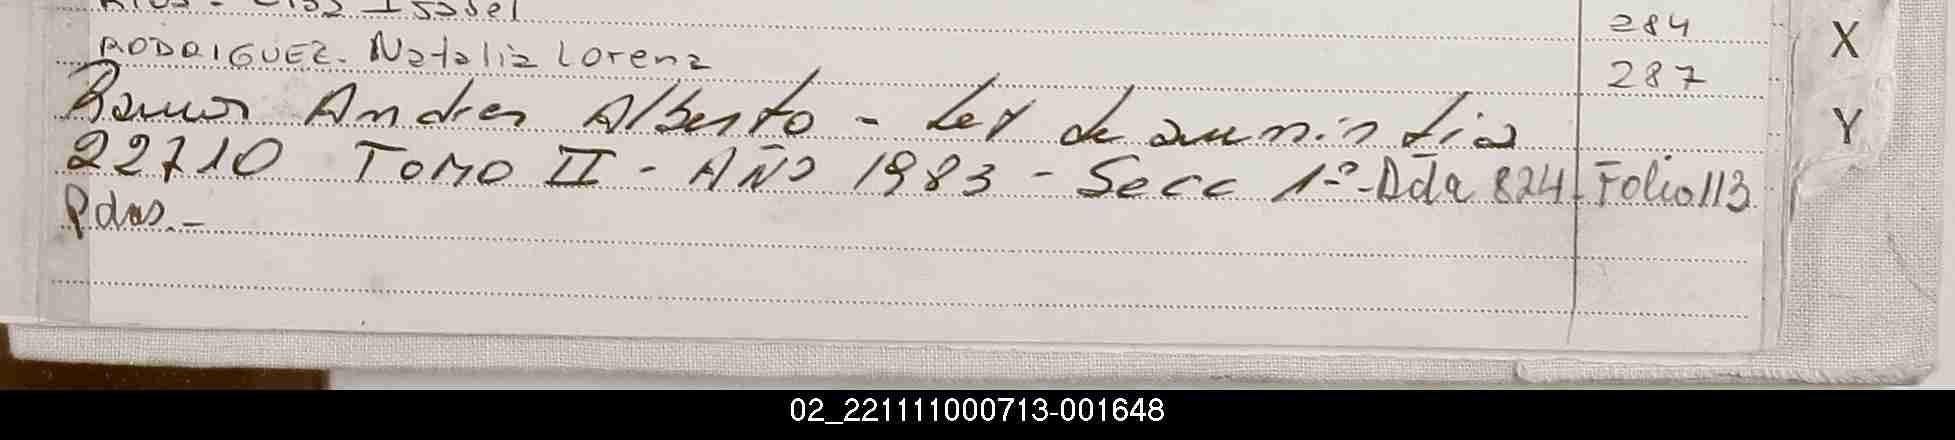 Rios - Elsa Isabel 284
RODRIGUEZ. Natalia Lorena 287
Ramos Andres Alberto - Ley de amnistia
22710 TOMO II - AÑO 1983 - Secc 1º - Dda 824 - Folio 113
Pdas.-
X
Y
02_221111000713-001648